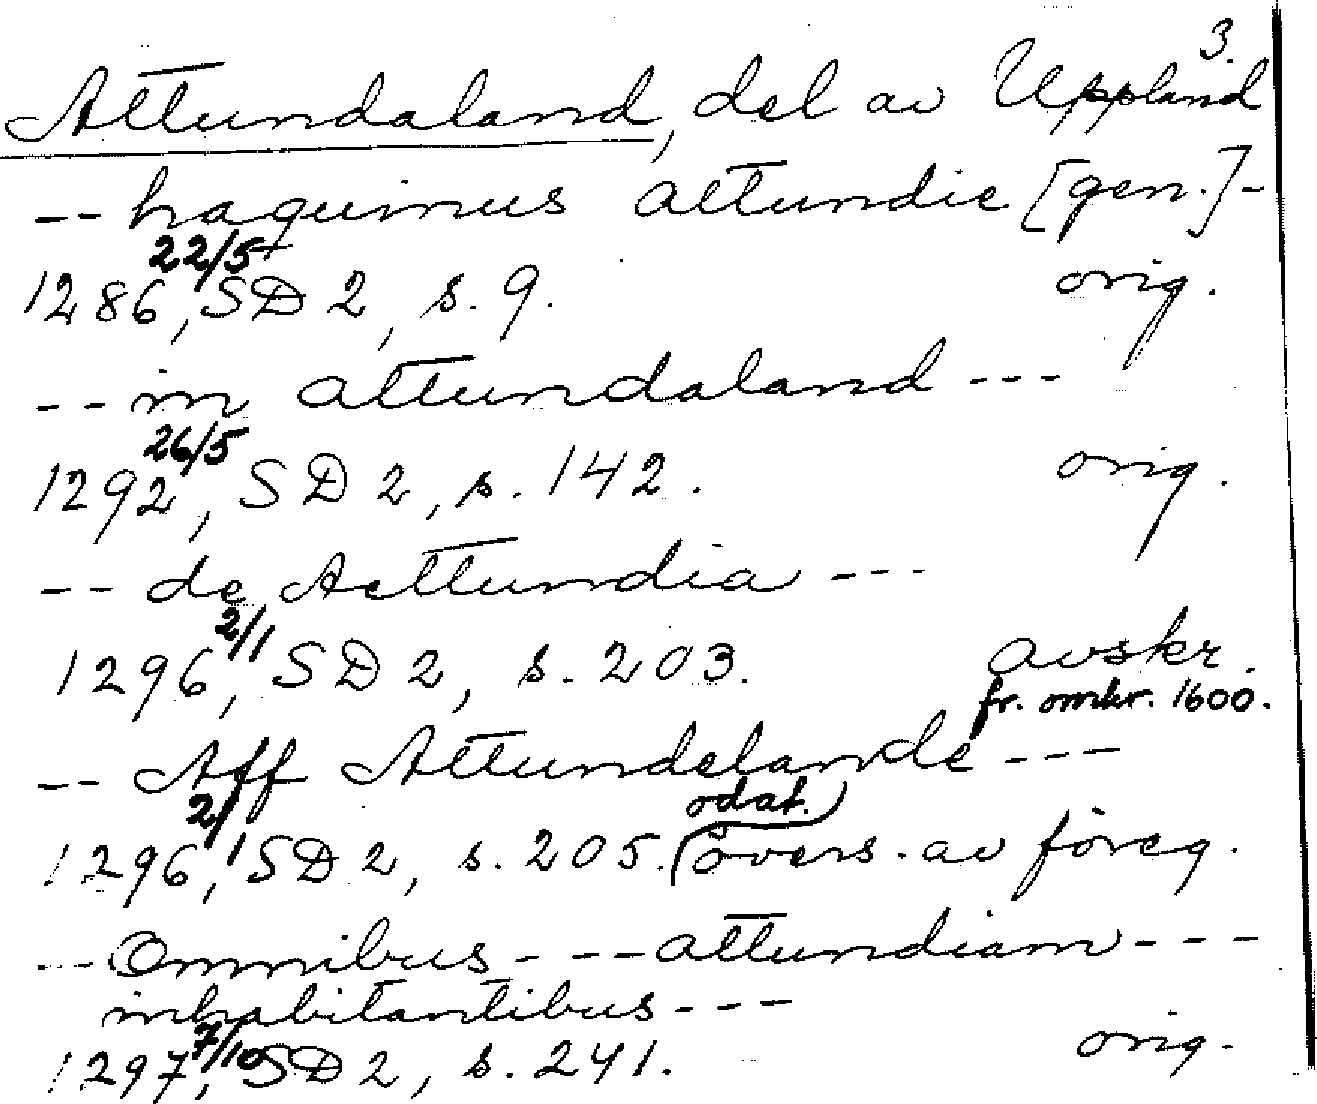 3.
Attundaland, del av Uppland
-- haquinus attundie [gen.]-
22/5
1286, SD 2, s. 9. orig.
-- in attundaland ---
26/5
1292, SD 2, s. 142. orig.
-- de Aettundia ---
2/1
1296, SD 2, s. 203. avskr.
fr. omkr. 1600.
-- Aff Attundelande ---
2/1 odat.
1296, SD 2, s. 205. (övers. av föreg.
-- Omnibus --- attundiam ---
inhabitantibus ---
7/10
1297, SD 2, s. 241. orig.